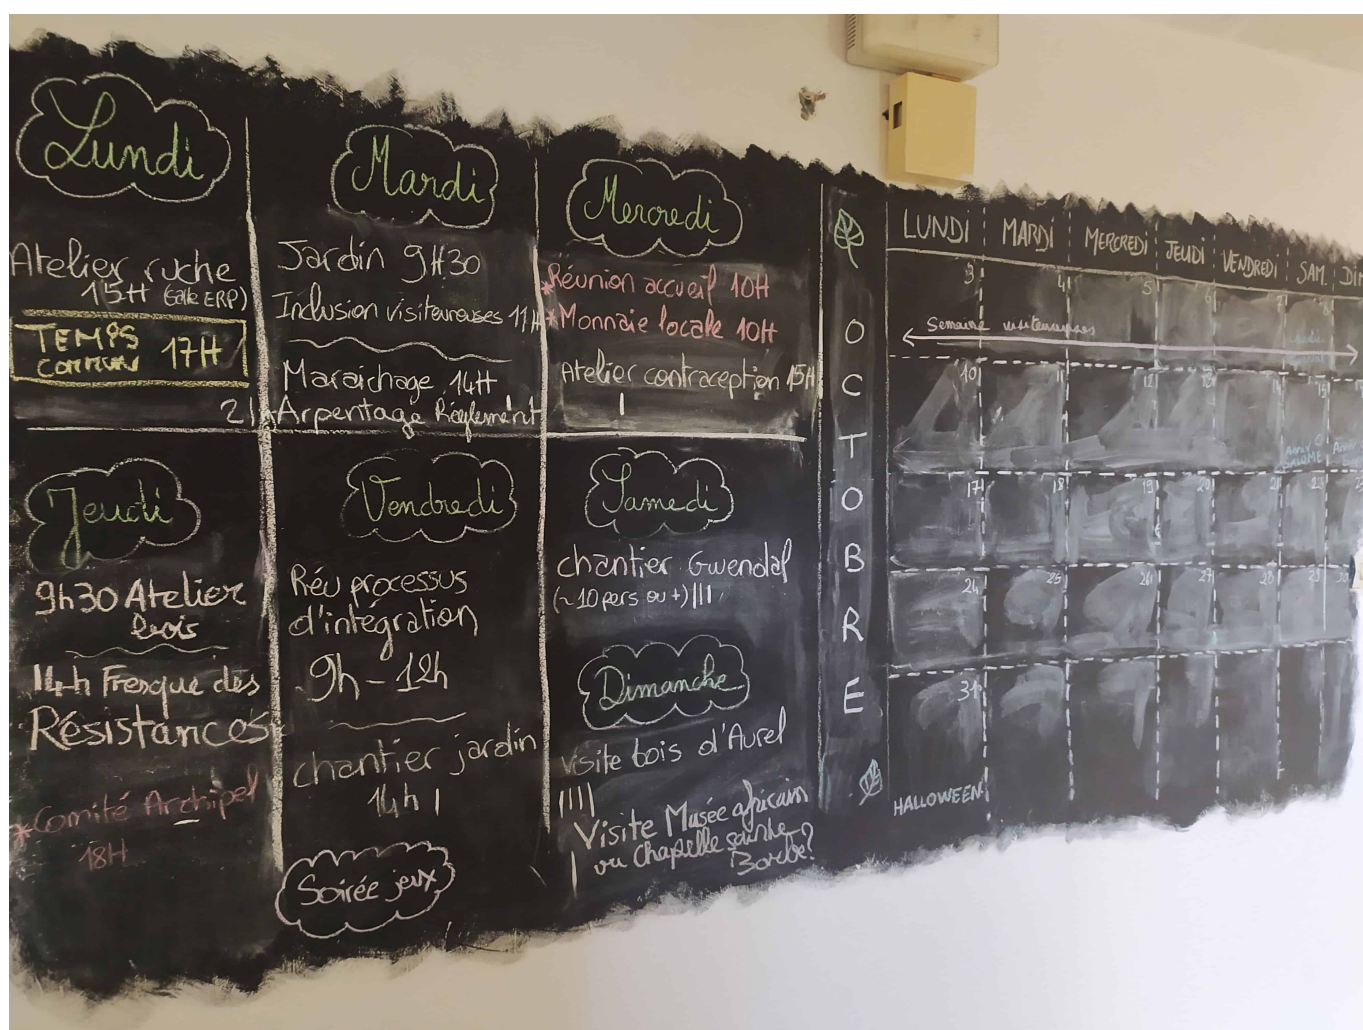 Lundi
Atelier ruche
15H (salle ERP)
TEMPS
COMMUN 17H
Mardi
Jardin 9H30
Inclusion visiteureuses 11H
Maraichage 14H
21h Arpentage Règlement
Mercredi
*Réunion accueil 10H
*Monnaie locale 10H
Atelier contraception 15H
Jeudi
9h30 Atelier
bois
14h Fresque des
Résistances
*Comité Archipel
18H
Vendredi
Réu processus
d'intégration
9h-12h
chantier jardin
14h
Soirée jeux
Samedi
chantier Gwendal
(~10 pers ou +)
Dimanche
Visite bois d'Aurel
Visite Musée africain
ou Chapelle sainte
Barbe?
OCTOBRE
LUNDI MARDI MERCREDI JEUDI VENDREDI SAM. DI
3 4 5 6 7 8
Semaine visiteureuses
10 11 12 13 15
17 18 19 20 21
24 25 26 27 28 29
31
HALLOWEEN